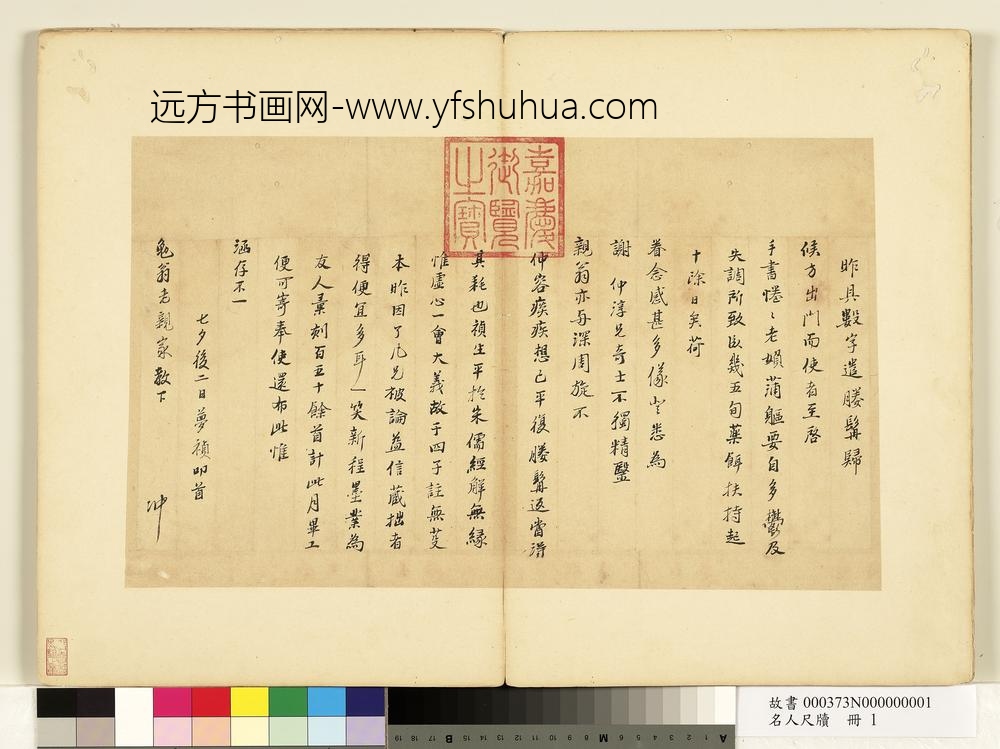 远方书画网-www.yfshuhua.com
嘉慶
御覽
之寶
昨具數字遣媵髯歸
候方出門而使者至啓
手書惓〻老嬾蒲軀要自多鬱及
失調所致臥幾五旬藥餌扶持起
十除日矣荷
眷念感甚多儀登悉為
謝仲淳兄奇士不獨精毉
親翁亦与深周旋不
仲容痰疾想已平復媵髯返當得
其耗也禎生平於朱儒經解無緣
惟虛心一會大義故于四子註無芟
本昨因了凡兄被論益信藏拙者
得便宜多耳一笑新程墨業為
友人彙刻百五十餘首計此月畢工
便可寄奉使還布此惟
涵存不一
七夕後二日夢禎叩首
翁老親家教下
冲
故書 000373N000000001
名人尺牘 冊 1
A 1 2 3 4 5 6 M 8 9 10 11 12 13 14 15 B 17 18 19